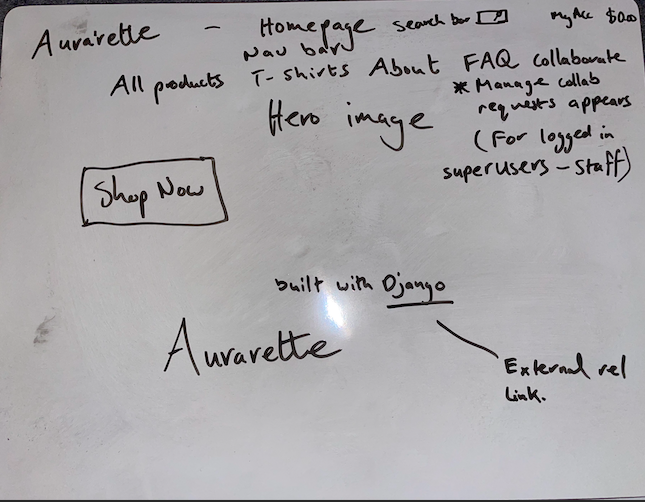 Aurarette - Homepage search bar My Acc $0.00
Nav bar
All products T-shirts About FAQ collaborate
* Manage collab
requests appears
(For logged in
superusers - staff)
Hero image
Shop Now
built with Django
Aurarette
External rel
link.